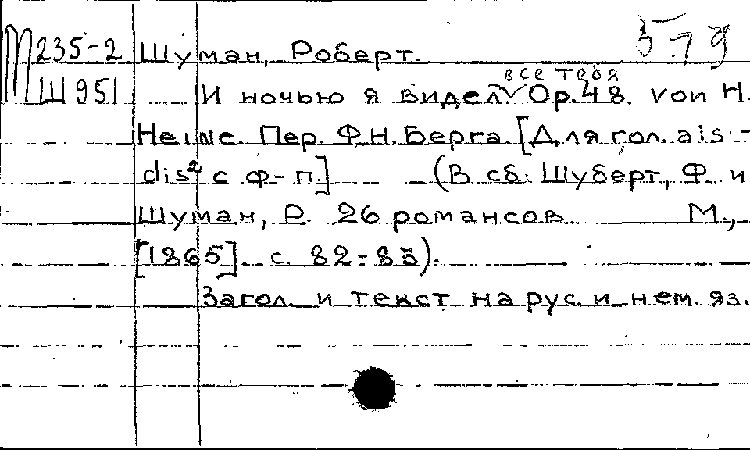 М235-2 Шуман, Роберт. 579
Ш951 И ночью я видел все тебя Ор.48. von H.
Heine. Пер. Ф.Н.Берга. [Для гол. ais -
dis² с ф-п.] (В сб. Шуберт, Ф. и
Шуман, Р. 26 романсов М.,
[1865] с. 82-83).
Загол. и текст на рус. и нем. яз.